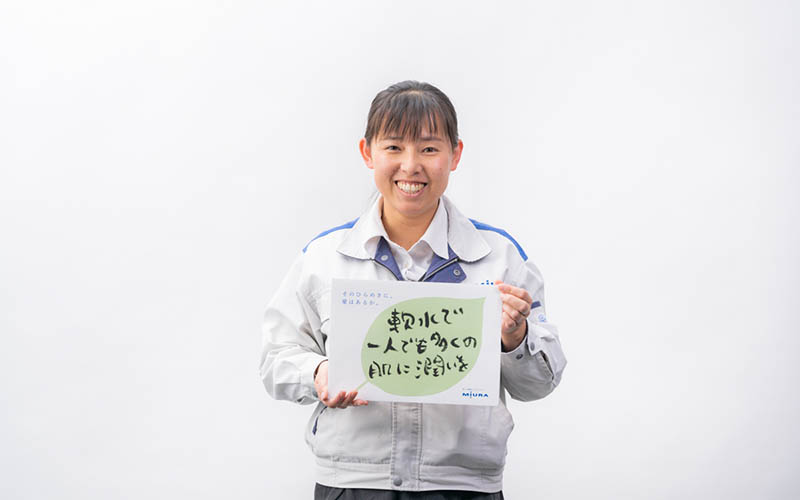 そのひらめきに、
愛はあるか。
軟水で
一人でも多くの
肌に潤いを
MIURA